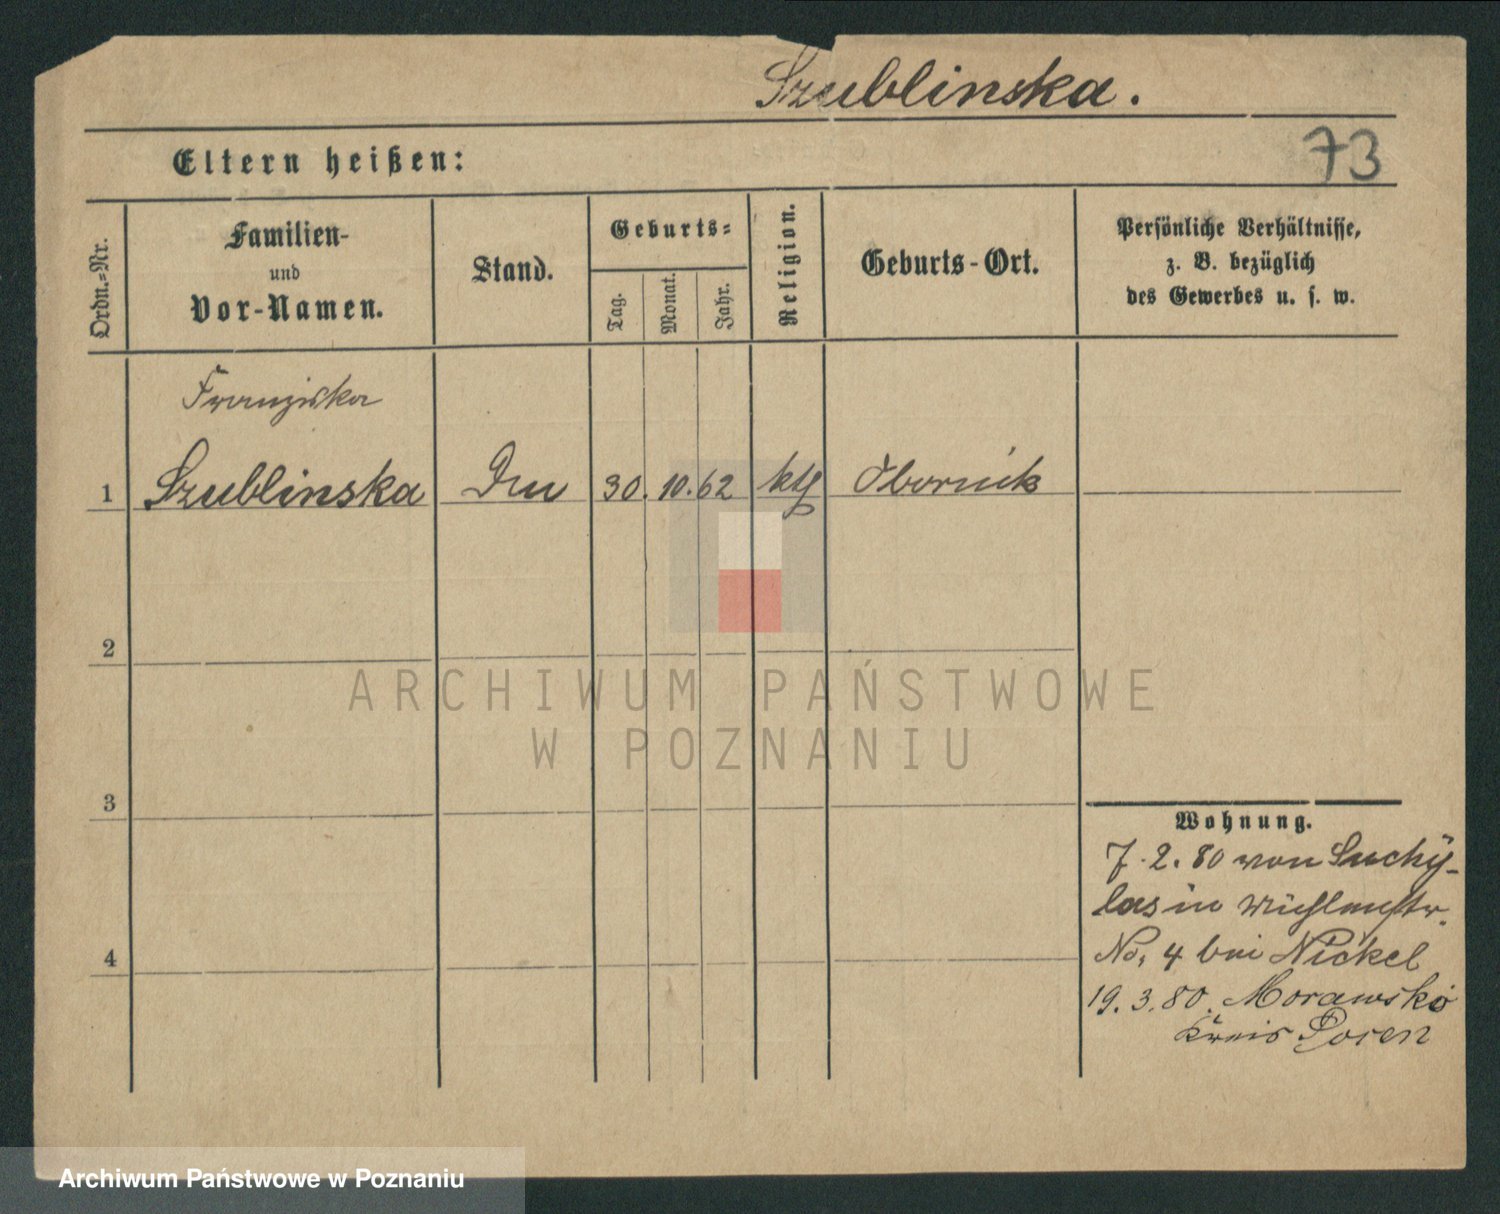 Szublinska.
73
Eltern heißen:
Ordn.-Nr.
Familien-
und
Vor-Namen.
Stand.
Geburts-
Tag.
Monat.
Jahr.
Religion.
Geburts-Ort.
Persönliche Verhältnisse,
z. B. bezüglich
des Gewerbes u. s. w.
Franziska
1 Szublinska 30. 10. 62 kth Obornik
2
3
4
Wohnung.
7. 2. 80 von Suchy-
las in Mühlenstr.
No. 4 bei Nickel
19. 3. 80. Morawsko
Kreis Posen
ARCHIWUM PAŃSTWOWE
W POZNANIU
Archiwum Państwowe w Poznaniu